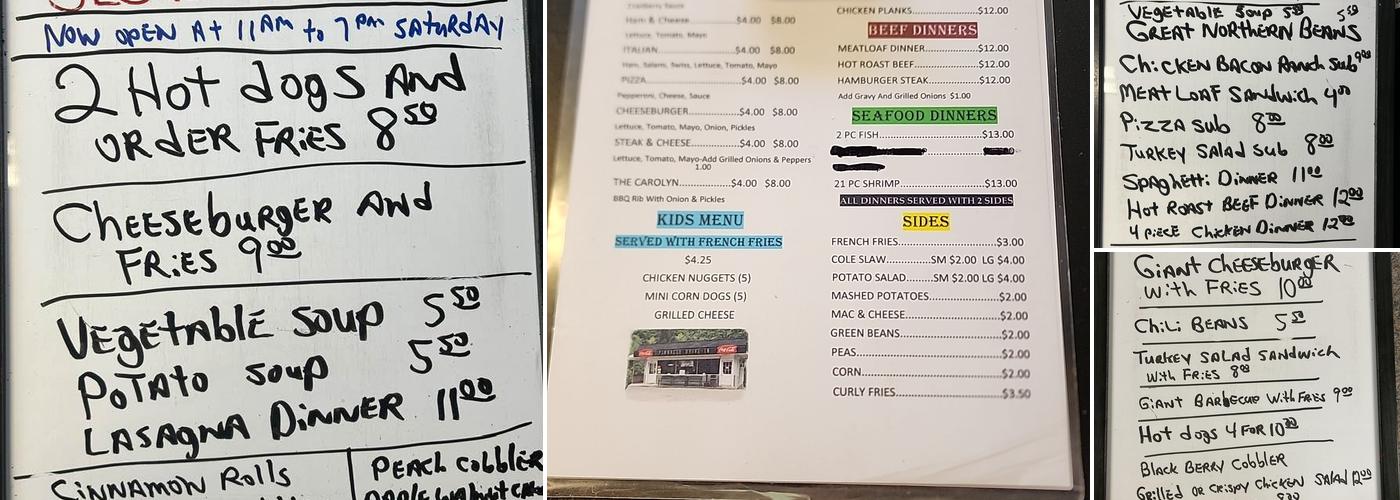 NOW OPEN At 11AM to 7PM SATURDAY
2 Hot dogs And
ORdER FRiES 8 50
CHEESEBURGER And
FRiES 9 00
VEGEtAblE Soup 5 50
PoTATo soup 5 50
LASAGNA DiNNER 11 00
CiNNAMON Rolls
PEACH CobblER
Ham & Cheese $4.00 $8.00
Lettuce, Tomato, Mayo
ITALIAN $4.00 $8.00
Ham, Salami, Swiss, Lettuce, Tomato, Mayo
PIZZA $4.00 $8.00
Pepperoni, Cheese, Sauce
CHEESEBURGER $4.00 $8.00
Lettuce, Tomato, Mayo, Onion, Pickles
STEAK & CHEESE $4.00 $8.00
Lettuce, Tomato, Mayo-Add Grilled Onions & Peppers
1.00
THE CAROLYN $4.00 $8.00
BBQ Rib With Onion & Pickles
KIDS MENU
SERVED WITH FRENCH FRIES
$4.25
CHICKEN NUGGETS (5)
MINI CORN DOGS (5)
GRILLED CHEESE
CHICKEN PLANKS $12.00
BEEF DINNERS
MEATLOAF DINNER $12.00
HOT ROAST BEEF $12.00
HAMBURGER STEAK $12.00
Add Gravy And Grilled Onions $1.00
SEAFOOD DINNERS
2 PC FISH $13.00
21 PC SHRIMP $13.00
ALL DINNERS SERVED WITH 2 SIDES
SIDES
FRENCH FRIES $3.00
COLE SLAW SM $2.00 LG $4.00
POTATO SALAD SM $2.00 LG $4.00
MASHED POTATOES $2.00
MAC & CHEESE $2.00
GREEN BEANS $2.00
PEAS $2.00
CORN $2.00
CURLY FRIES $3.50
VEGETABLE Soup 5 50
GREAT NORTHERN BEANS 5 50
CHiCKEN BACON RANCH Sub 9 00
MEAT LOAF SANDWICH 4 00
PiZZA Sub 8 00
TURKEY SALAD Sub 8 00
SPAGHETTi DINNER 11 00
Hot ROAST BEEF DINNER 12 00
4 PiECE CHICKEN DINNER 12 00
GiANT CHEESEBURGER
WITH FRIES 10 00
CHiLi BEANS 5 50
TURKEY SALAD SANDWICH
WITH FRiES 8 00
GIANT BARBECUE WITH FRIES 9 00
Hot dogs 4 FOR 10 00
BLACK BERRY CobblER
GRillED OR CRISPY CHICKEN SALAD 12 00